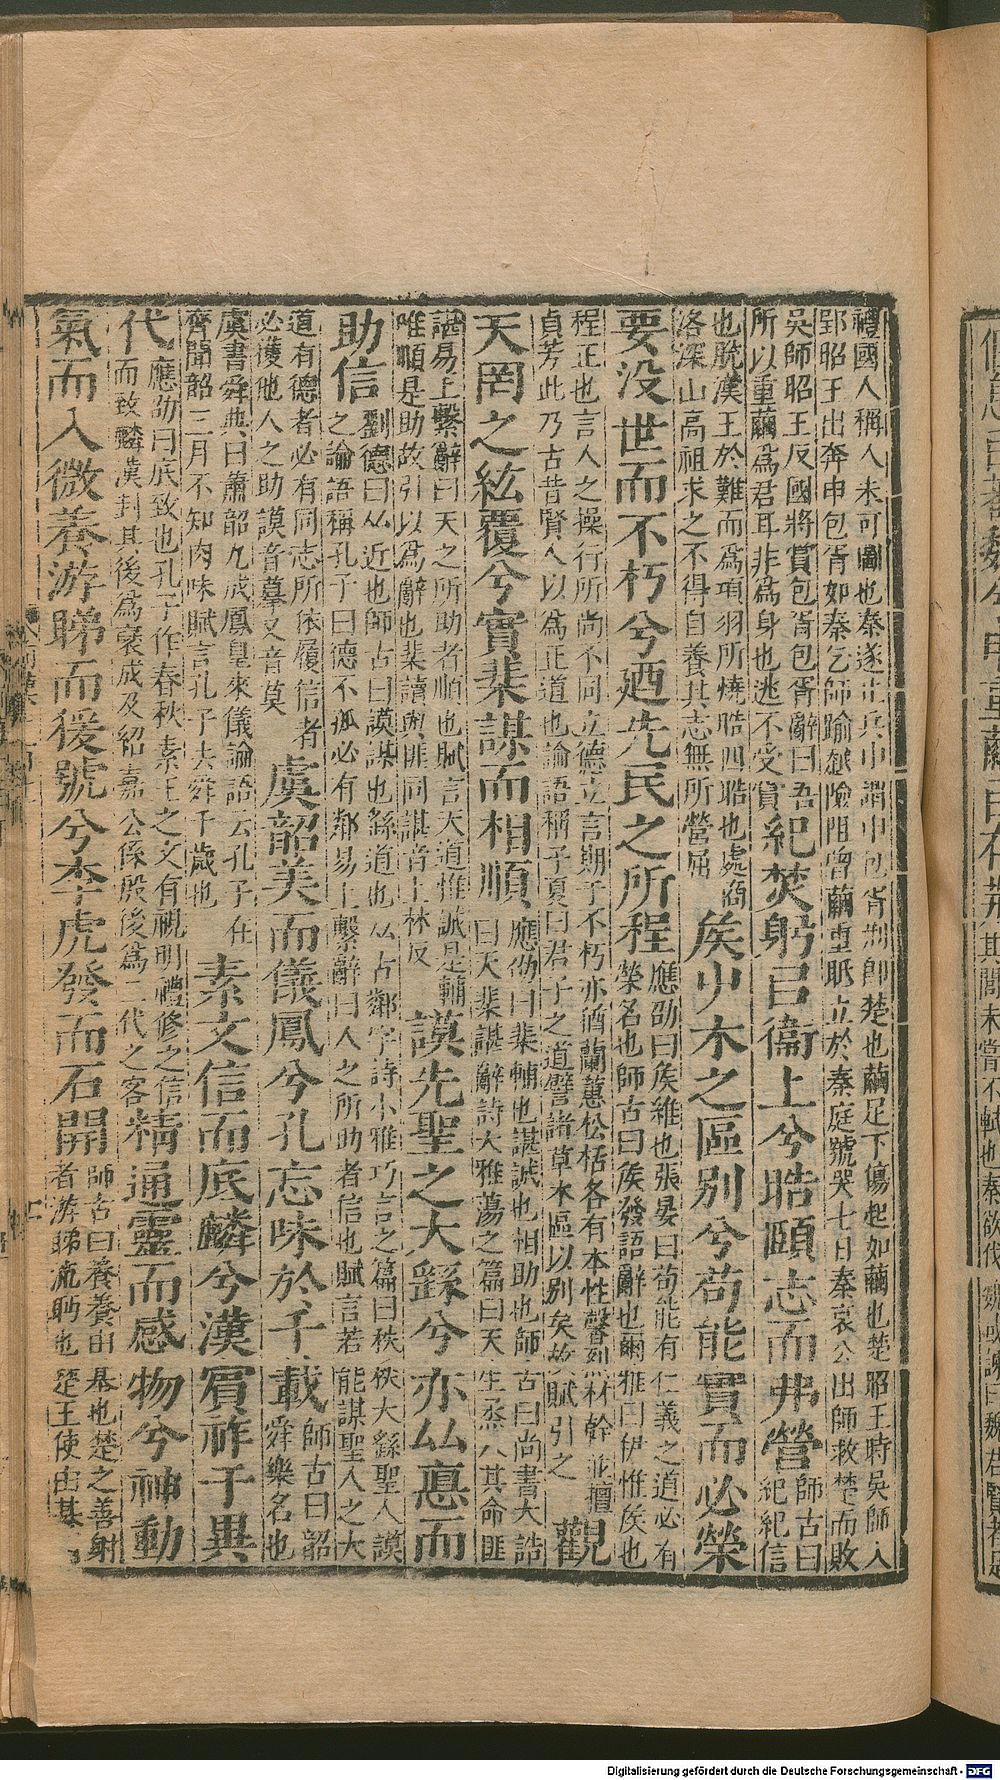 禮國人稱人未可圖也秦遂止兵申謂申包胥荊師楚也繭足下傷起如繭也楚昭王時吳師入
郢昭王出奔申包胥如秦乞師踰越險阻曾繭重胝立於秦庭號哭七日秦哀公出師救楚而敗
吳師昭王反國將賞包胥包胥辭曰吾
所以重繭為君耳非為身也逃不受賞
紀焚躬㠯衞上兮晧頤志而弗營
師古曰紀紀信
也脫漢王於難而為項羽所燒晧四晧也處商
洛深山高祖求之不得自養其志無所營屈
矦屮木之區別兮苟能實而必榮
要没世而不朽兮廼先民之所程
應劭曰矦維也張晏曰苟能有仁義之道必有
榮名也師古曰矦發語辭也爾雅曰伊惟矦也
程正也言人之操行所尚不同立德立言期于不朽亦猶蘭蕙松栝各有本性馨烈材幹並擅
貞芳此乃古昔賢人以為正道也論語稱子夏曰君子之道譬諸草木區以別矣故賦引之
觀
天罔之紘覆兮實棐諶而相順
應劭曰棐輔也諶誠也相助也師古曰尚書大誥
曰天棐諶辭詩大雅蕩之篇曰天生烝人其命匪
諶易上繫辭曰天之所助者順也賦言天道惟誠是輔
唯順是助故引以為辭也棐讀與匪同諶音上林反
謨先聖之大繇兮亦厸悳而
助信
劉德曰厸近也師古曰謨謀也繇道也厸古鄰字詩小雅巧言之篇曰秩秩大繇聖人謨
之論語稱孔子曰德不孤必有鄰易上繫辭曰人之所助者信也賦言若能謀聖人之大
道有德者必有同志所依履信者
必獲他人之助謨音摹又音莫
虞韶美而儀鳳兮孔忘味於千載
師古曰韶
舜樂名也
虞書舜典曰蕭韶九成鳳皇來儀論語云孔子在
齊聞韶三月不知肉味賦言孔子去舜千歲也
素文信而底麟兮漢賓祚于異
代
應劭曰底致也孔子作春秋素王之文有視明禮修之信
而致麟漢封其後為襃成及紹嘉公係殷後為二代之客
精通靈而感物兮神動
氣而入微養游睇而猨號兮李虎發而石開
師古曰養養由基也楚之善射
者游睇流眄也楚王使由基
Digitalisierung gefördert durch die Deutsche Forschungsgemeinschaft - DFG